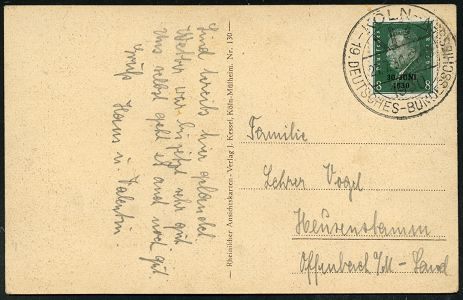 Sind bereits hier gelandet
Wetter war bis jetzt sehr gut
Uns selbst geht es auch noch gut
Gruß
Hans u. Valentin
— Rheinischer Ansichtskarten-Verlag J. Kessel, Köln-Mülheim. Nr. 130 —
KÖLN
19. DEUTSCHES-BUNDESSCHIESSEN
30. JUNI
1930
8 8
Familie
Lehrer Vogel
Heusenstamm
Offenbach a/M - Land